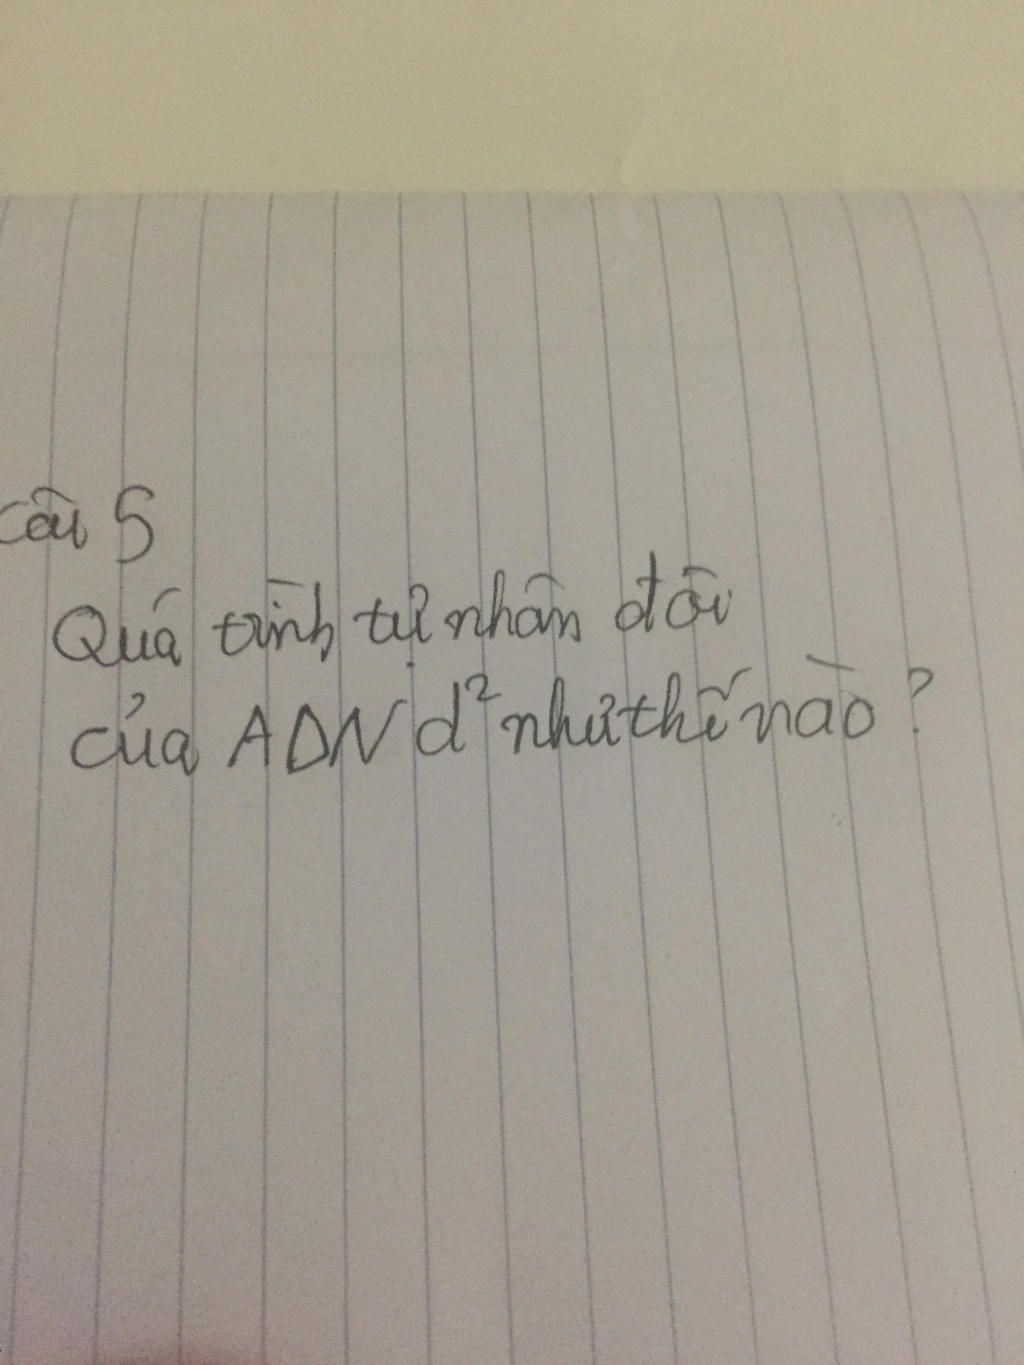 Câu 5
Quá trình tự nhân đôi
của ADN d² như thế nào?